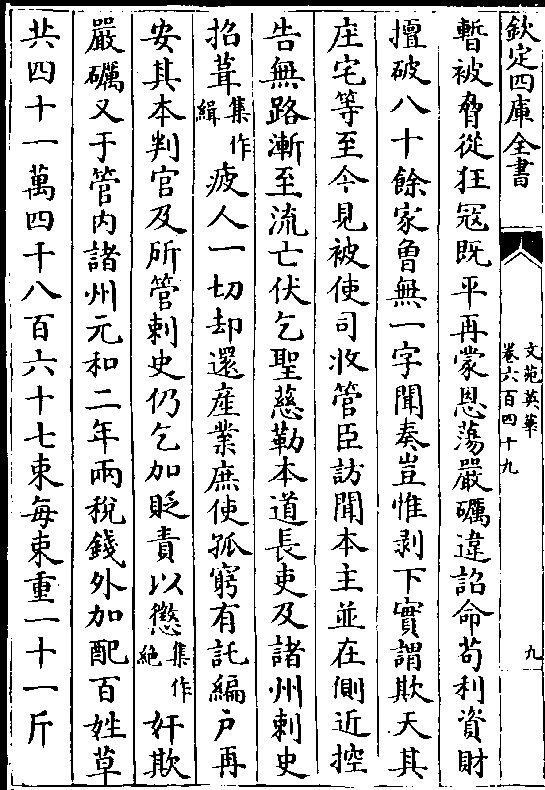 欽定四庫全書
文苑英華
卷六百四十九
九
暫被脅從狂冦既平再蒙恩蕩嚴礪違詔命苟利資財
擅破八十餘家曾無一字聞奏豈惟剥下實謂欺天其
庄宅等至今見被使司收管臣訪聞本主並在側近控
告無路漸至流亡伏乞聖慈勒本道長吏及諸州刺史
招葺集作緝疲人一切却還産業庶使孤窮有託編户再
安其本判官及所管刺史仍乞加貶責以懲集作絶奸欺
嚴礪又于管内諸州元和二年兩稅錢外加配百姓草
共四十一萬四十八百六十七束每束重一十一斤